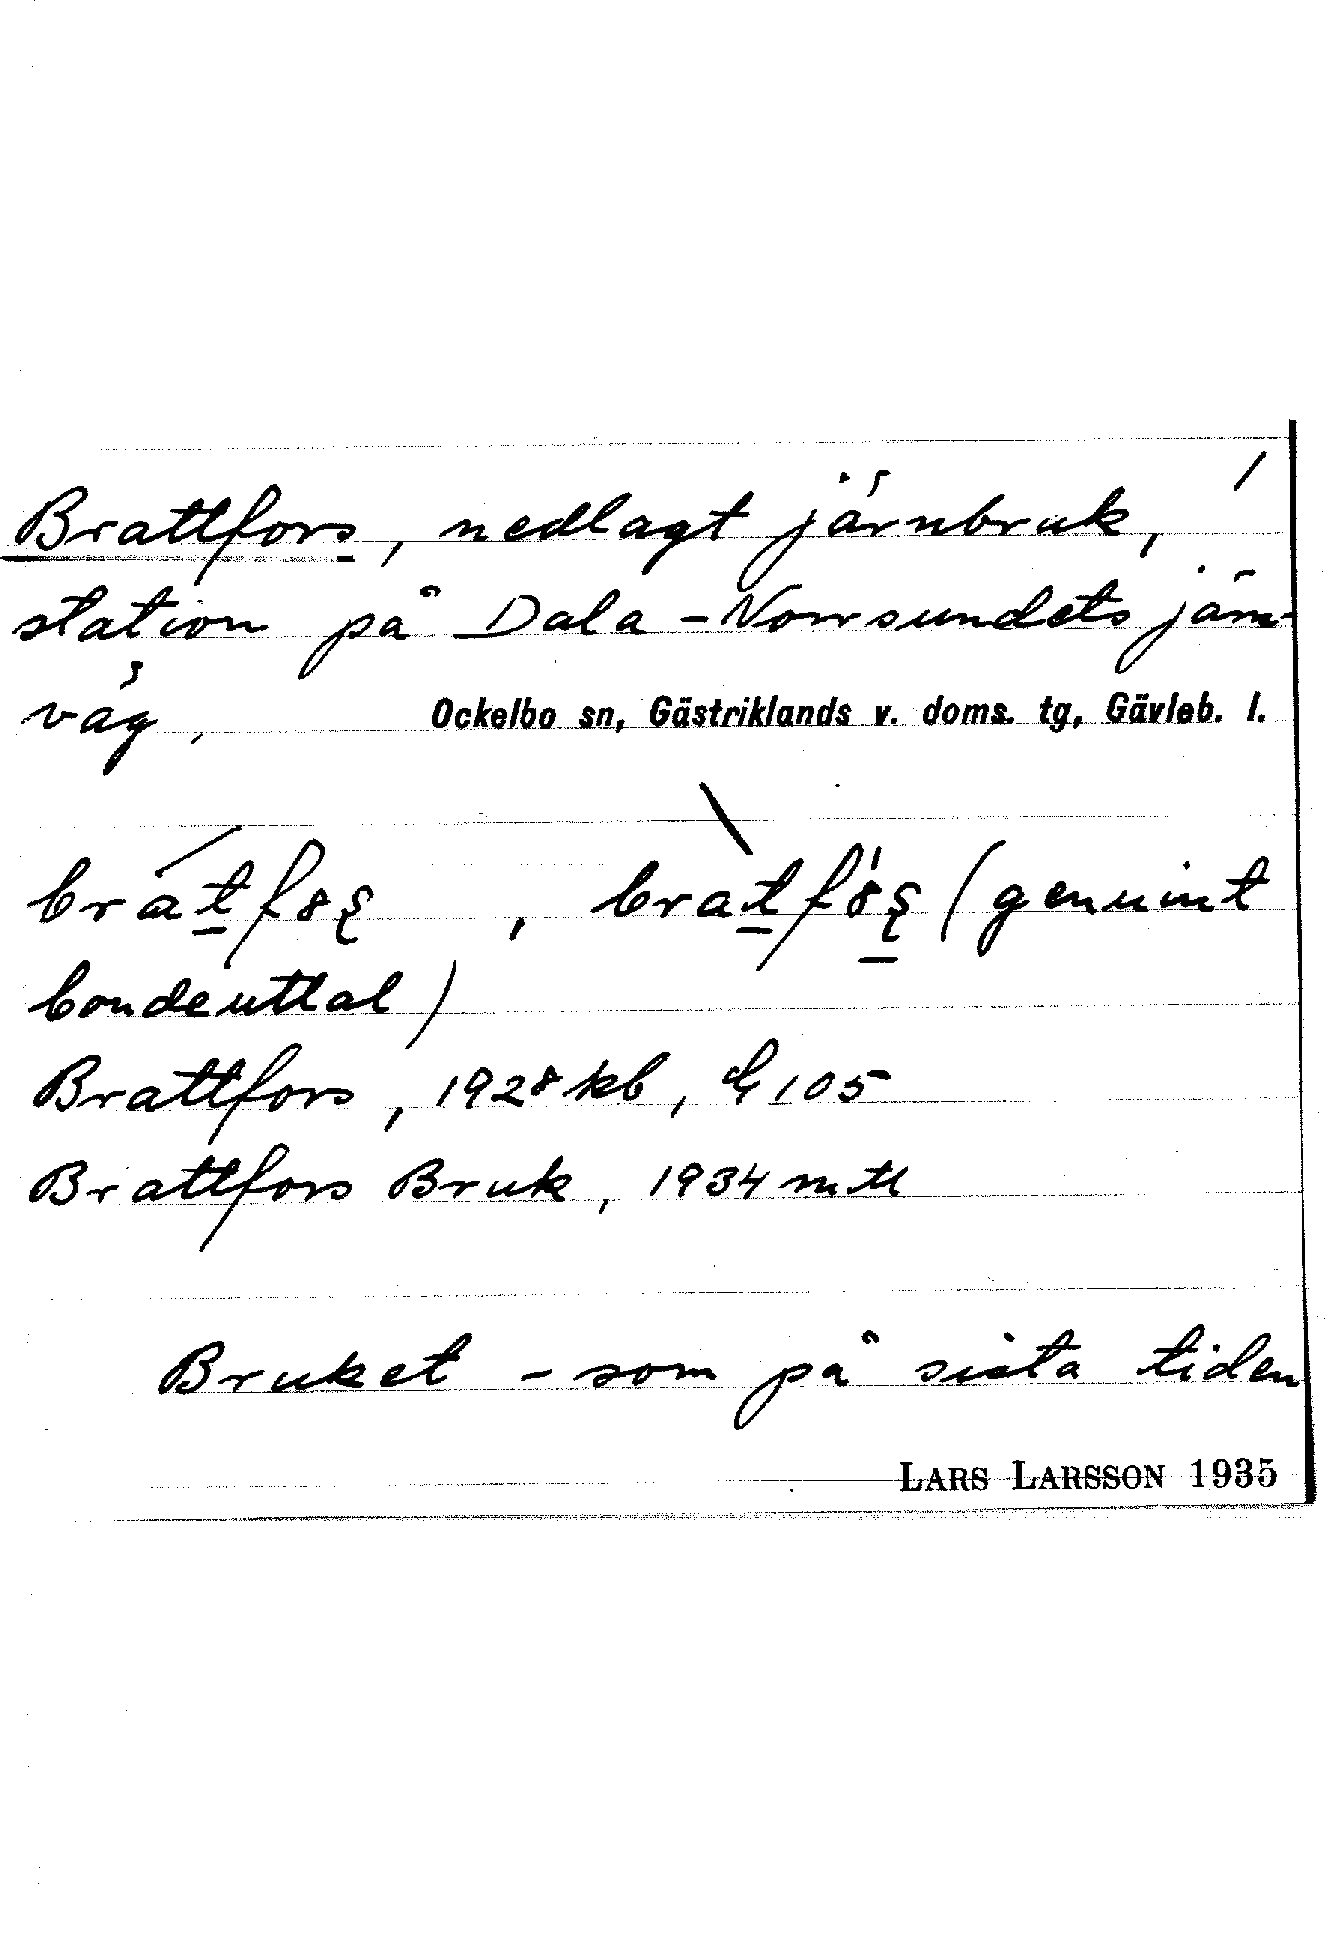 /
Brattfors, nedlagt järnbruk,
station på Dala-Norrsundets järn-
väg, Ockelbo sn, Gästriklands v. doms. tg, Gävleb. l.
bratfos, bratfos (genuint
bondeuttal)
Brattfors, 1928 kb, E 105
Brattfors Bruk, 1934 mtl
Bruket - som på sista tiden
LARS LARSSON 1935